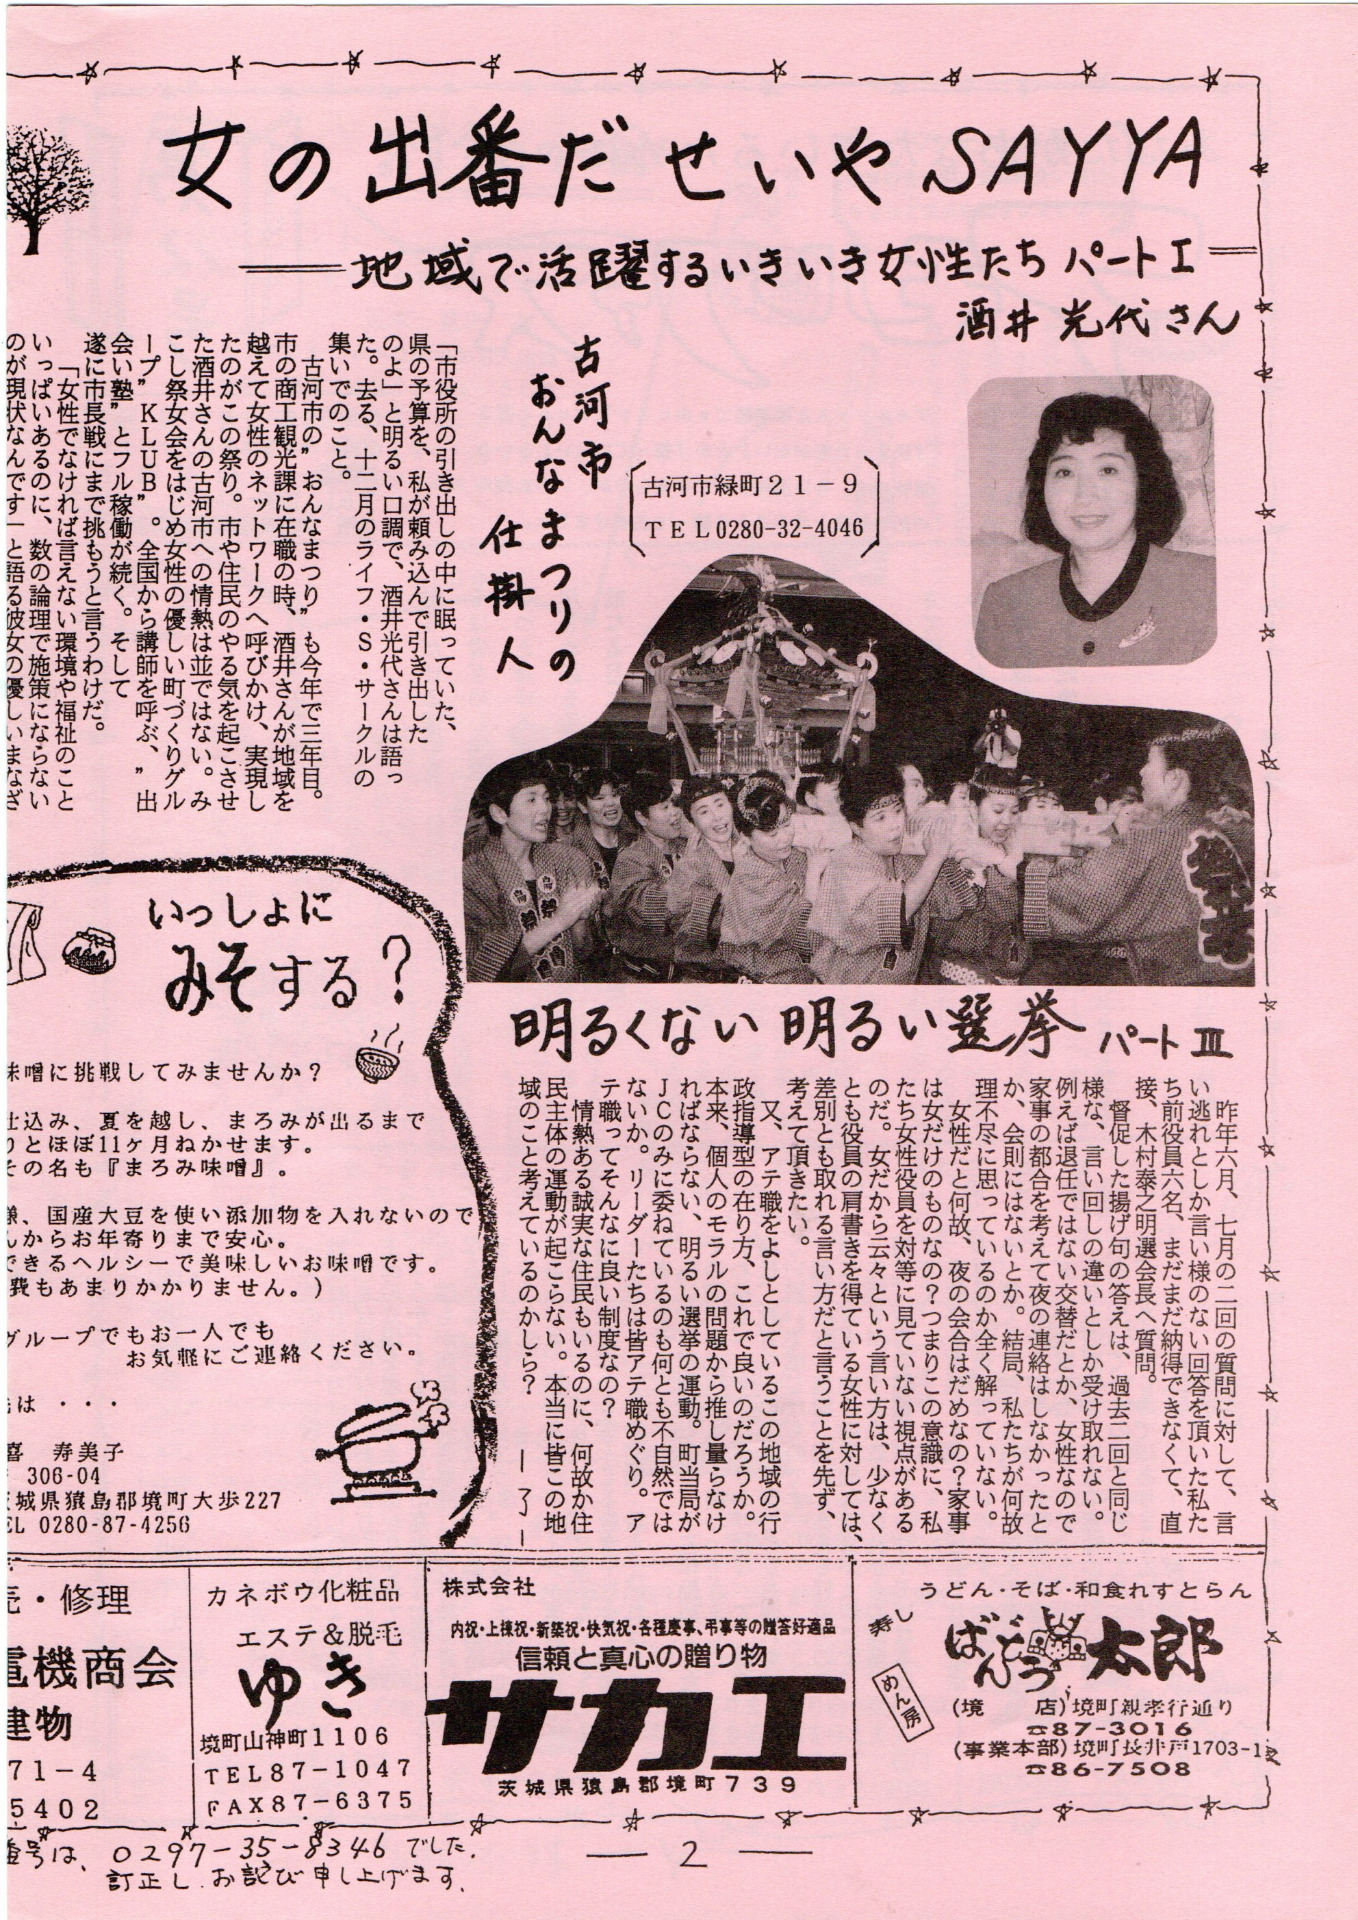 女の出番だ せいや SAYYA
地域で活躍するいきいき女性たち パートⅠ
酒井 光代さん
古河市
おんなまつりの
仕掛人
古河市緑町21-9
TEL0280-32-4046
「市役所の引き出しの中に眠っていた、
県の予算を、私が頼み込んで引き出した
のよ」と明るい口調で、酒井光代さんは語っ
た。去る、十二月のライフ・S・サークルの
集いでのこと。
古河市の"おんなまつり"も今年で三年目。
市の商工観光課に在職の時、酒井さんが地域を
越えて女性のネットワークへ呼びかけ、実現し
たのがこの祭り。市や住民のやる気を起こさせ
た酒井さんの古河市への情熱は並ではない。み
こし祭女会をはじめ女性の優しい町づくりグル
ープ"KLUB"。全国から講師を呼ぶ、"出
会い塾"とフル稼働が続く。そして
遂に市長戦にまで挑もうと言うわけだ。
「女性でなければ言えない環境や福祉のこと
いっぱいあるのに、数の論理で施策にならない
のが現状なんです」と語る彼女の優しいまなざ
明るくない 明るい選挙 パートⅢ
昨年六月、七月の二回の質問に対して、言
い逃れとしか言い様のない回答を頂いた私た
ち前役員六名、まだまだ納得できなくて、直
接、木村泰之明選会長へ質問。
督促した揚げ句の答えは、過去二回と同じ
様な、言い回しの違いとしか受け取れない。
例えば退任ではない交替だとか、女性なので
家事の都合を考えて夜の連絡はしなかったと
か、会則にはないとか。結局、私たちが何故
理不尽に思っているのか全く解っていない。
女性だと何故、夜の会合はだめなの?家事
は女だけのものなの?つまりこの意識に、私
たち女性役員を対等に見ていない視点がある
のだ。女だから云々という言い方は、少なく
とも役員の肩書きを得ている女性に対しては、
差別とも取れる言い方だと言うことを先ず、
考えて頂きたい。
又、アテ職をよしとしているこの地域の行
政指導型の在り方、これで良いのだろうか。
本来、個人のモラルの問題から推し量らなけ
ればならない、明るい選挙の運動。町当局が
JCのみに委ねているのも何とも不自然では
ないか。リーダーたちは皆アテ職めぐり。ア
テ職ってそんなに良い制度なの?
情熱ある誠実な住民もいるのに、何故か住
民主体の運動が起こらない。本当に皆この地
域のこと考えているのかしら?
―了―
いっしょに
みそする?
味噌に挑戦してみませんか?
仕込み、夏を越し、まろみが出るまで
りとほぼ11ヶ月ねかせます。
その名も『まろみ味噌』。
様、国産大豆を使い添加物を入れないので
んからお年寄りまで安心。
できるヘルシーで美味しいお味噌です。
費もあまりかかりません。)
グループでもお一人でも
お気軽にご連絡ください。
は・・・
喜 寿美子
306-04
茨城県猿島郡境町大歩227
EL 0280-87-4256
売・修理
電機商会
建物
71-4
5402
カネボウ化粧品
エステ&脱毛
ゆき
境町山神町1106
TEL87-1047
FAX87-6375
株式会社
内祝・上棟祝・新築祝・快気祝・各種慶事、弔事等の贈答好適品
信頼と真心の贈り物
サカエ
茨城県猿島郡境町739
うどん・そば・和食れすとらん
寿し
めん房
ばんどう太郎
(境 店)境町親孝行通り
☎87-3016
(事業本部)境町長井戸1703-1
☎86-7508
番号は、0297-35-8346でした。
訂正し お詫び申し上げます。
― 2 ―